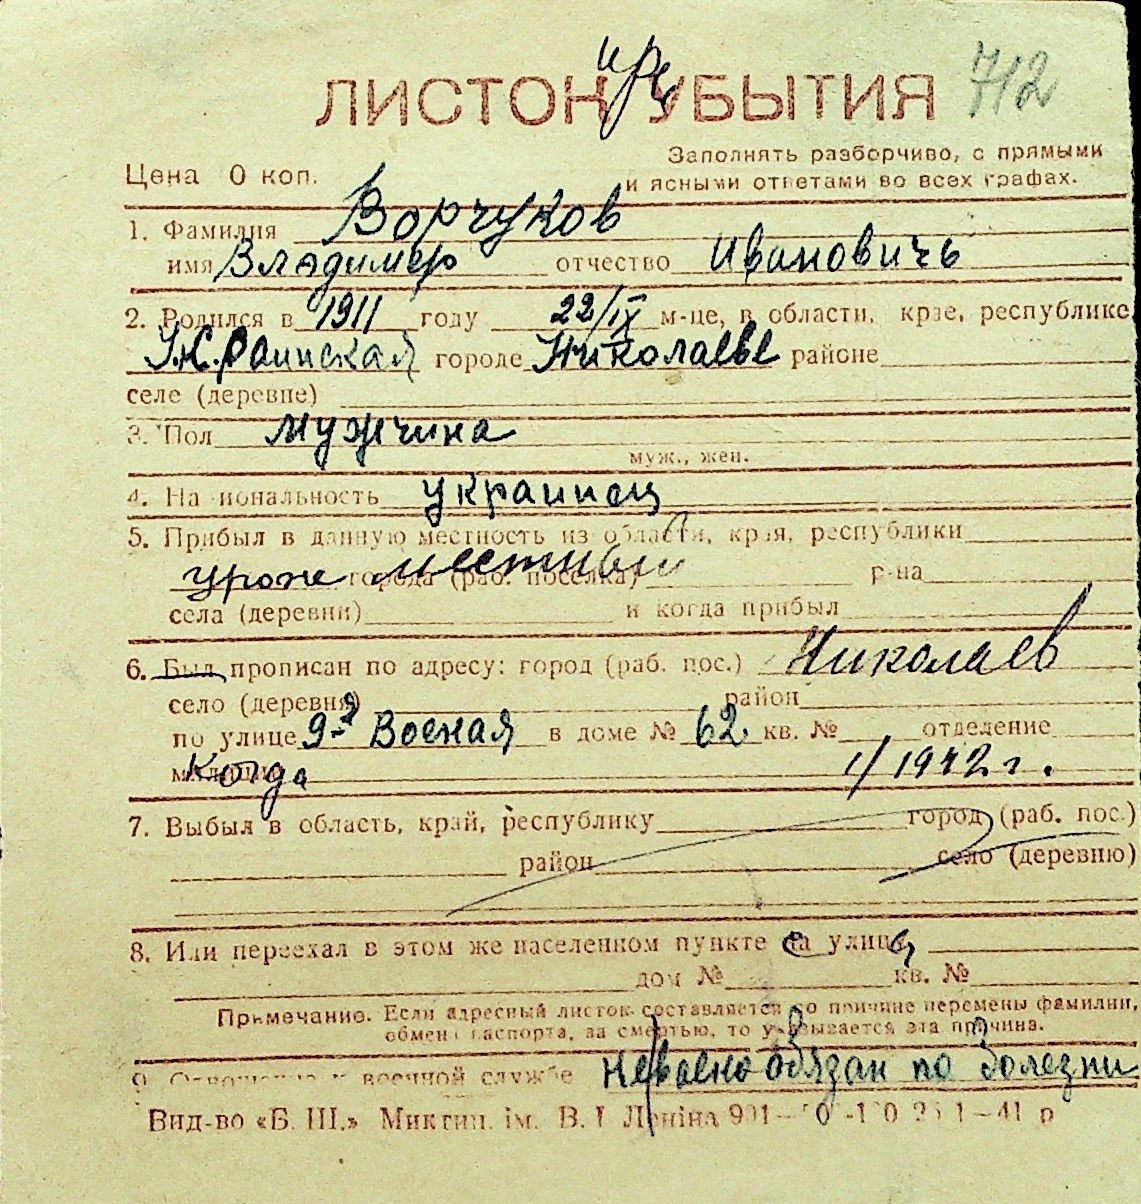 при
ЛИСТОК УБЫТИЯ 712
Заполнять разборчиво, с прямыми
Цена 0 коп. и ясными ответами во всех графах.
1. Фамилия Ворчуков
имя Владимер отчество Ивановичь
2. Родился в 1911 году 22/IX м-це, в области, крае, республике
Украинская городе Николаеве районе
селе (деревне)
3. Пол мужчина
муж., жен.
4. Национальность украинец
5. Прибыл в данную местность из области, края, республики
уроже местный города (раб. поселка) р-на
села (деревни) и когда прибыл
6. Был прописан по адресу: город (раб. пос.) Николаев
село (деревня) район
по улице 9-я Военая в доме № 62 кв. № отделение
милиции Когда 1/1942 г.
7. Выбыл в область, край, республику город (раб. пос.)
район село (деревню)
8. Или переехал в этом же населенном пункте на улицу
дом № кв. №
Примечание. Если адресный листок составляется по причине перемены фамилии,
обмена паспорта, за смертью, то указывается эта причина.
9. Отношение к военной службе Невоено обязан по болезни
Вид-во «Б. Ш.» Микол. ім. В. І. Леніна